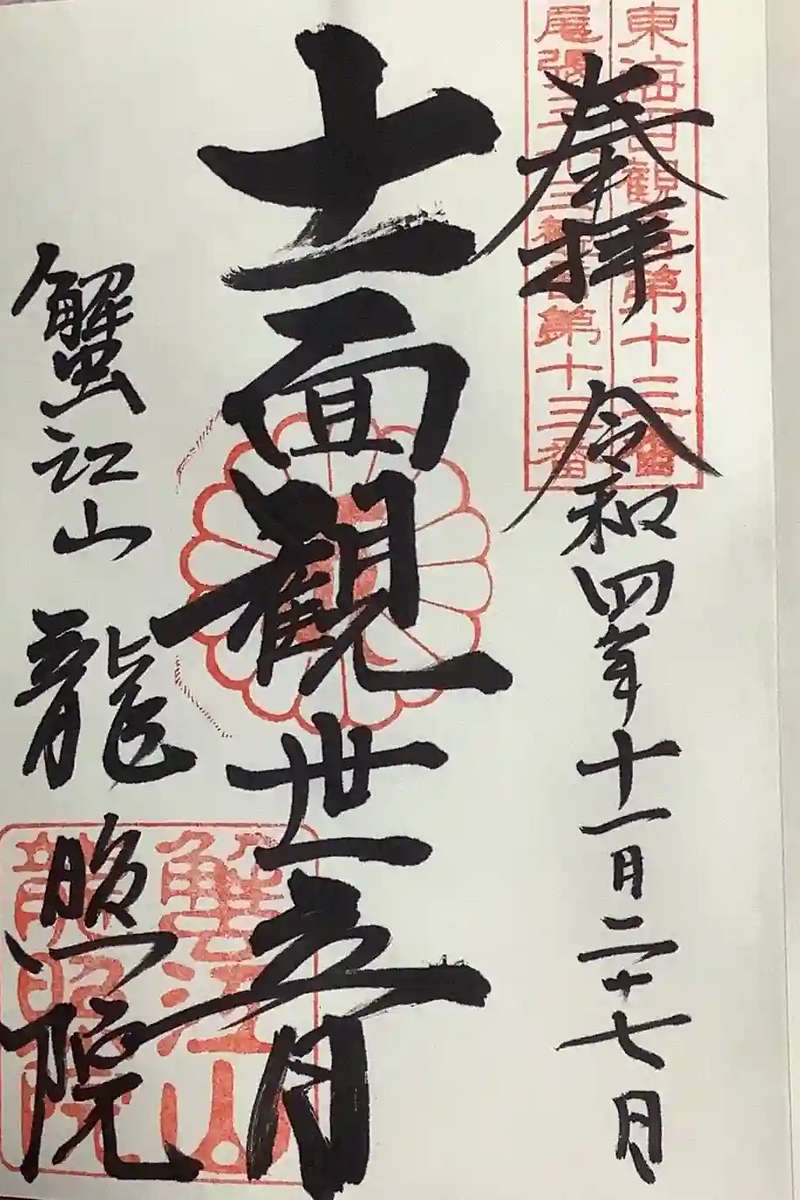 東海百観音第十三番
尾張三十三観音第十三番
奉拝
令和四年十一月二十七日
十一面観世音
蟹江山 龍照院
蟹江山
龍照院